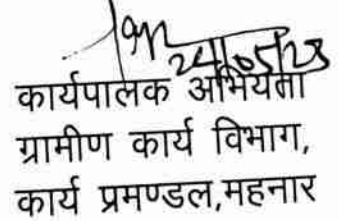 24/05/23
कार्यपालक अभियंता
ग्रामीण कार्य विभाग,
कार्य प्रमण्डल,महनार